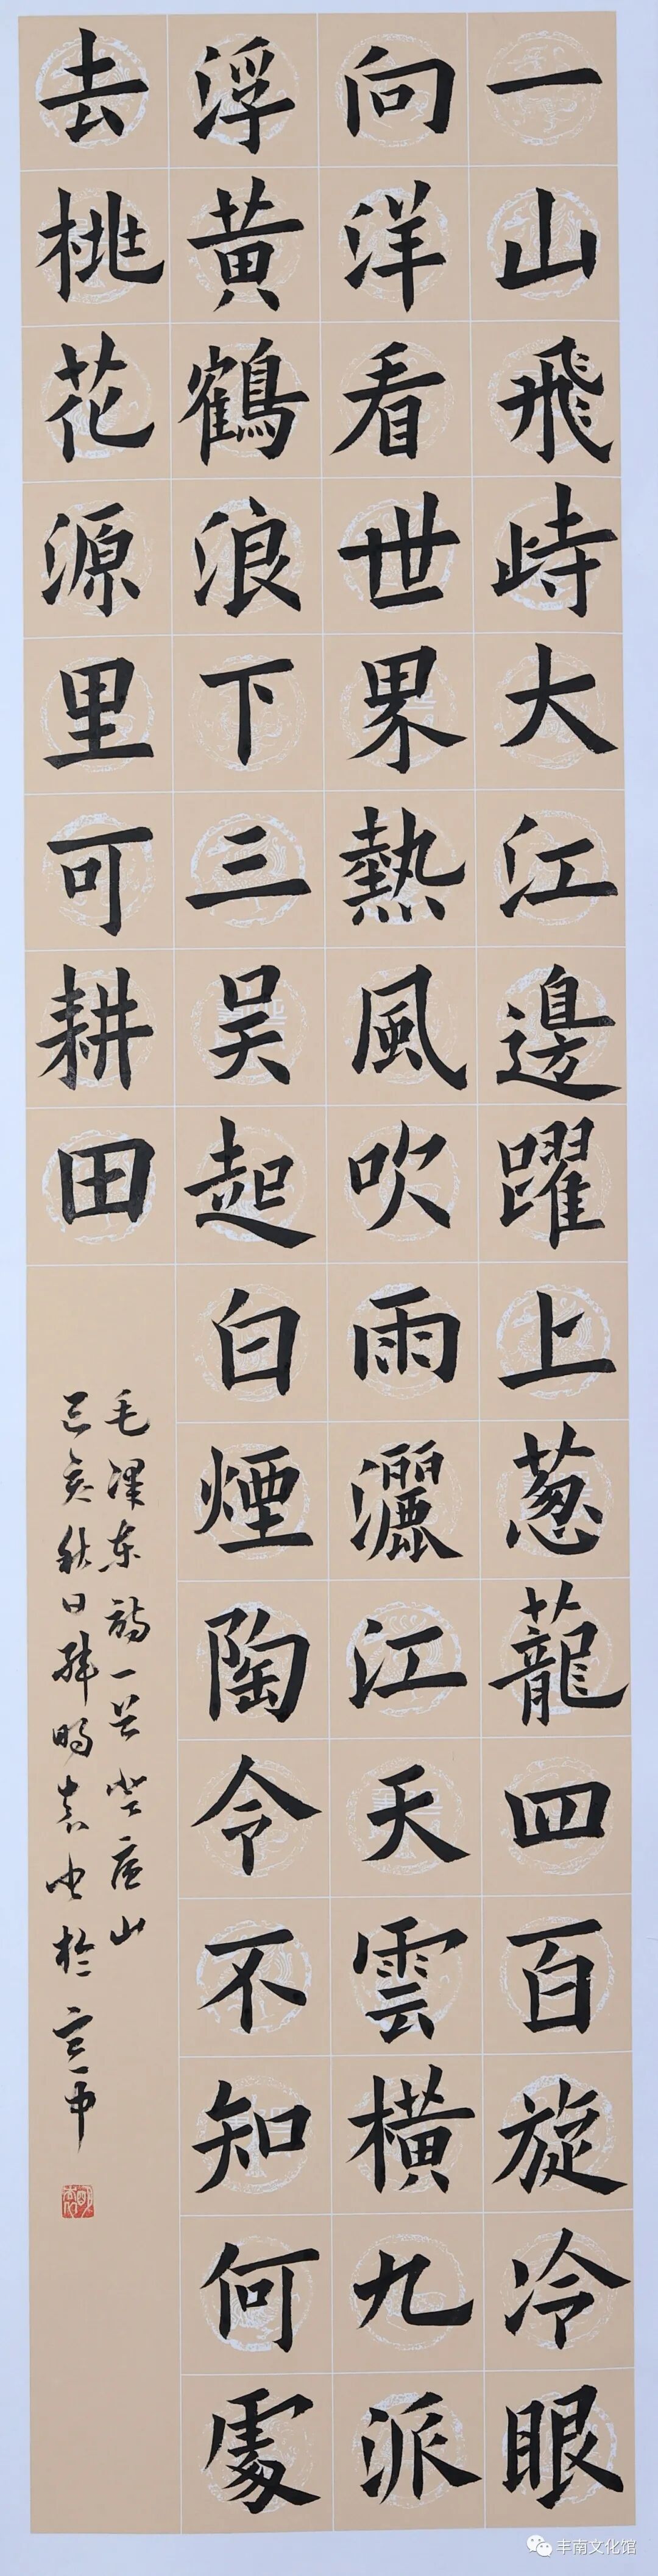 一山飛峙大江邊躍上葱蘢四百旋冷眼
向洋看世界熱風吹雨灑江天雲橫九派
浮黃鶴浪下三吳起白煙陶令不知何處
去桃花源里可耕田
毛澤东詩一首登庐山
己亥秋日
丰南文化馆